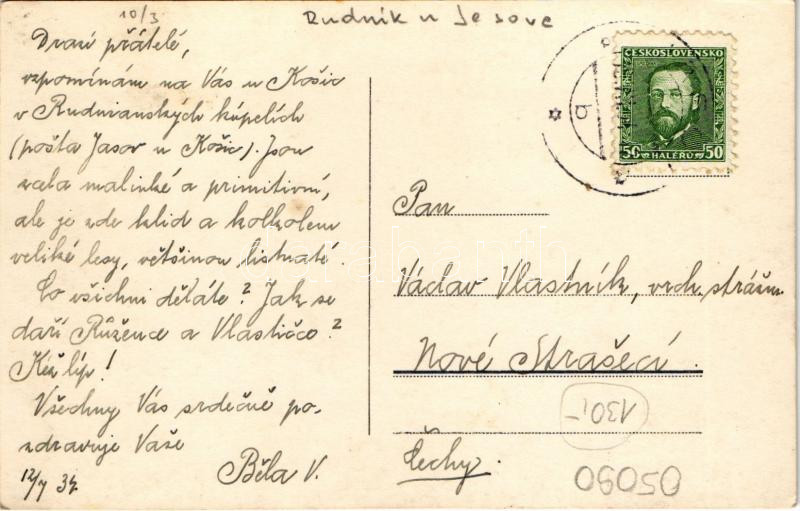 10/3
Rudník u Jesove
Drazí přátelé,
vzpomínám na Vás u Košic
v Rudnianských kúpelích
(pošta Jasov u Košic). Jsou
zcela malinké a primitivní,
ale je zde klid a kolkolem
veliké lesy, většinou listnaté.
Co všichni děláte? Jak se
daří Růžence a Vlastičco?
Kéž líp!
Všechny Vás srdečně po-
zdravuje Vaše
Běla V.
12/7 34.
ČESKOSLOVENSKO
50 HALÉŘŮ 50
Pan
Václav Vlastník, vrch. strážm.
Nové Strašecí.
Čechy.
130,-
05090
darabanth